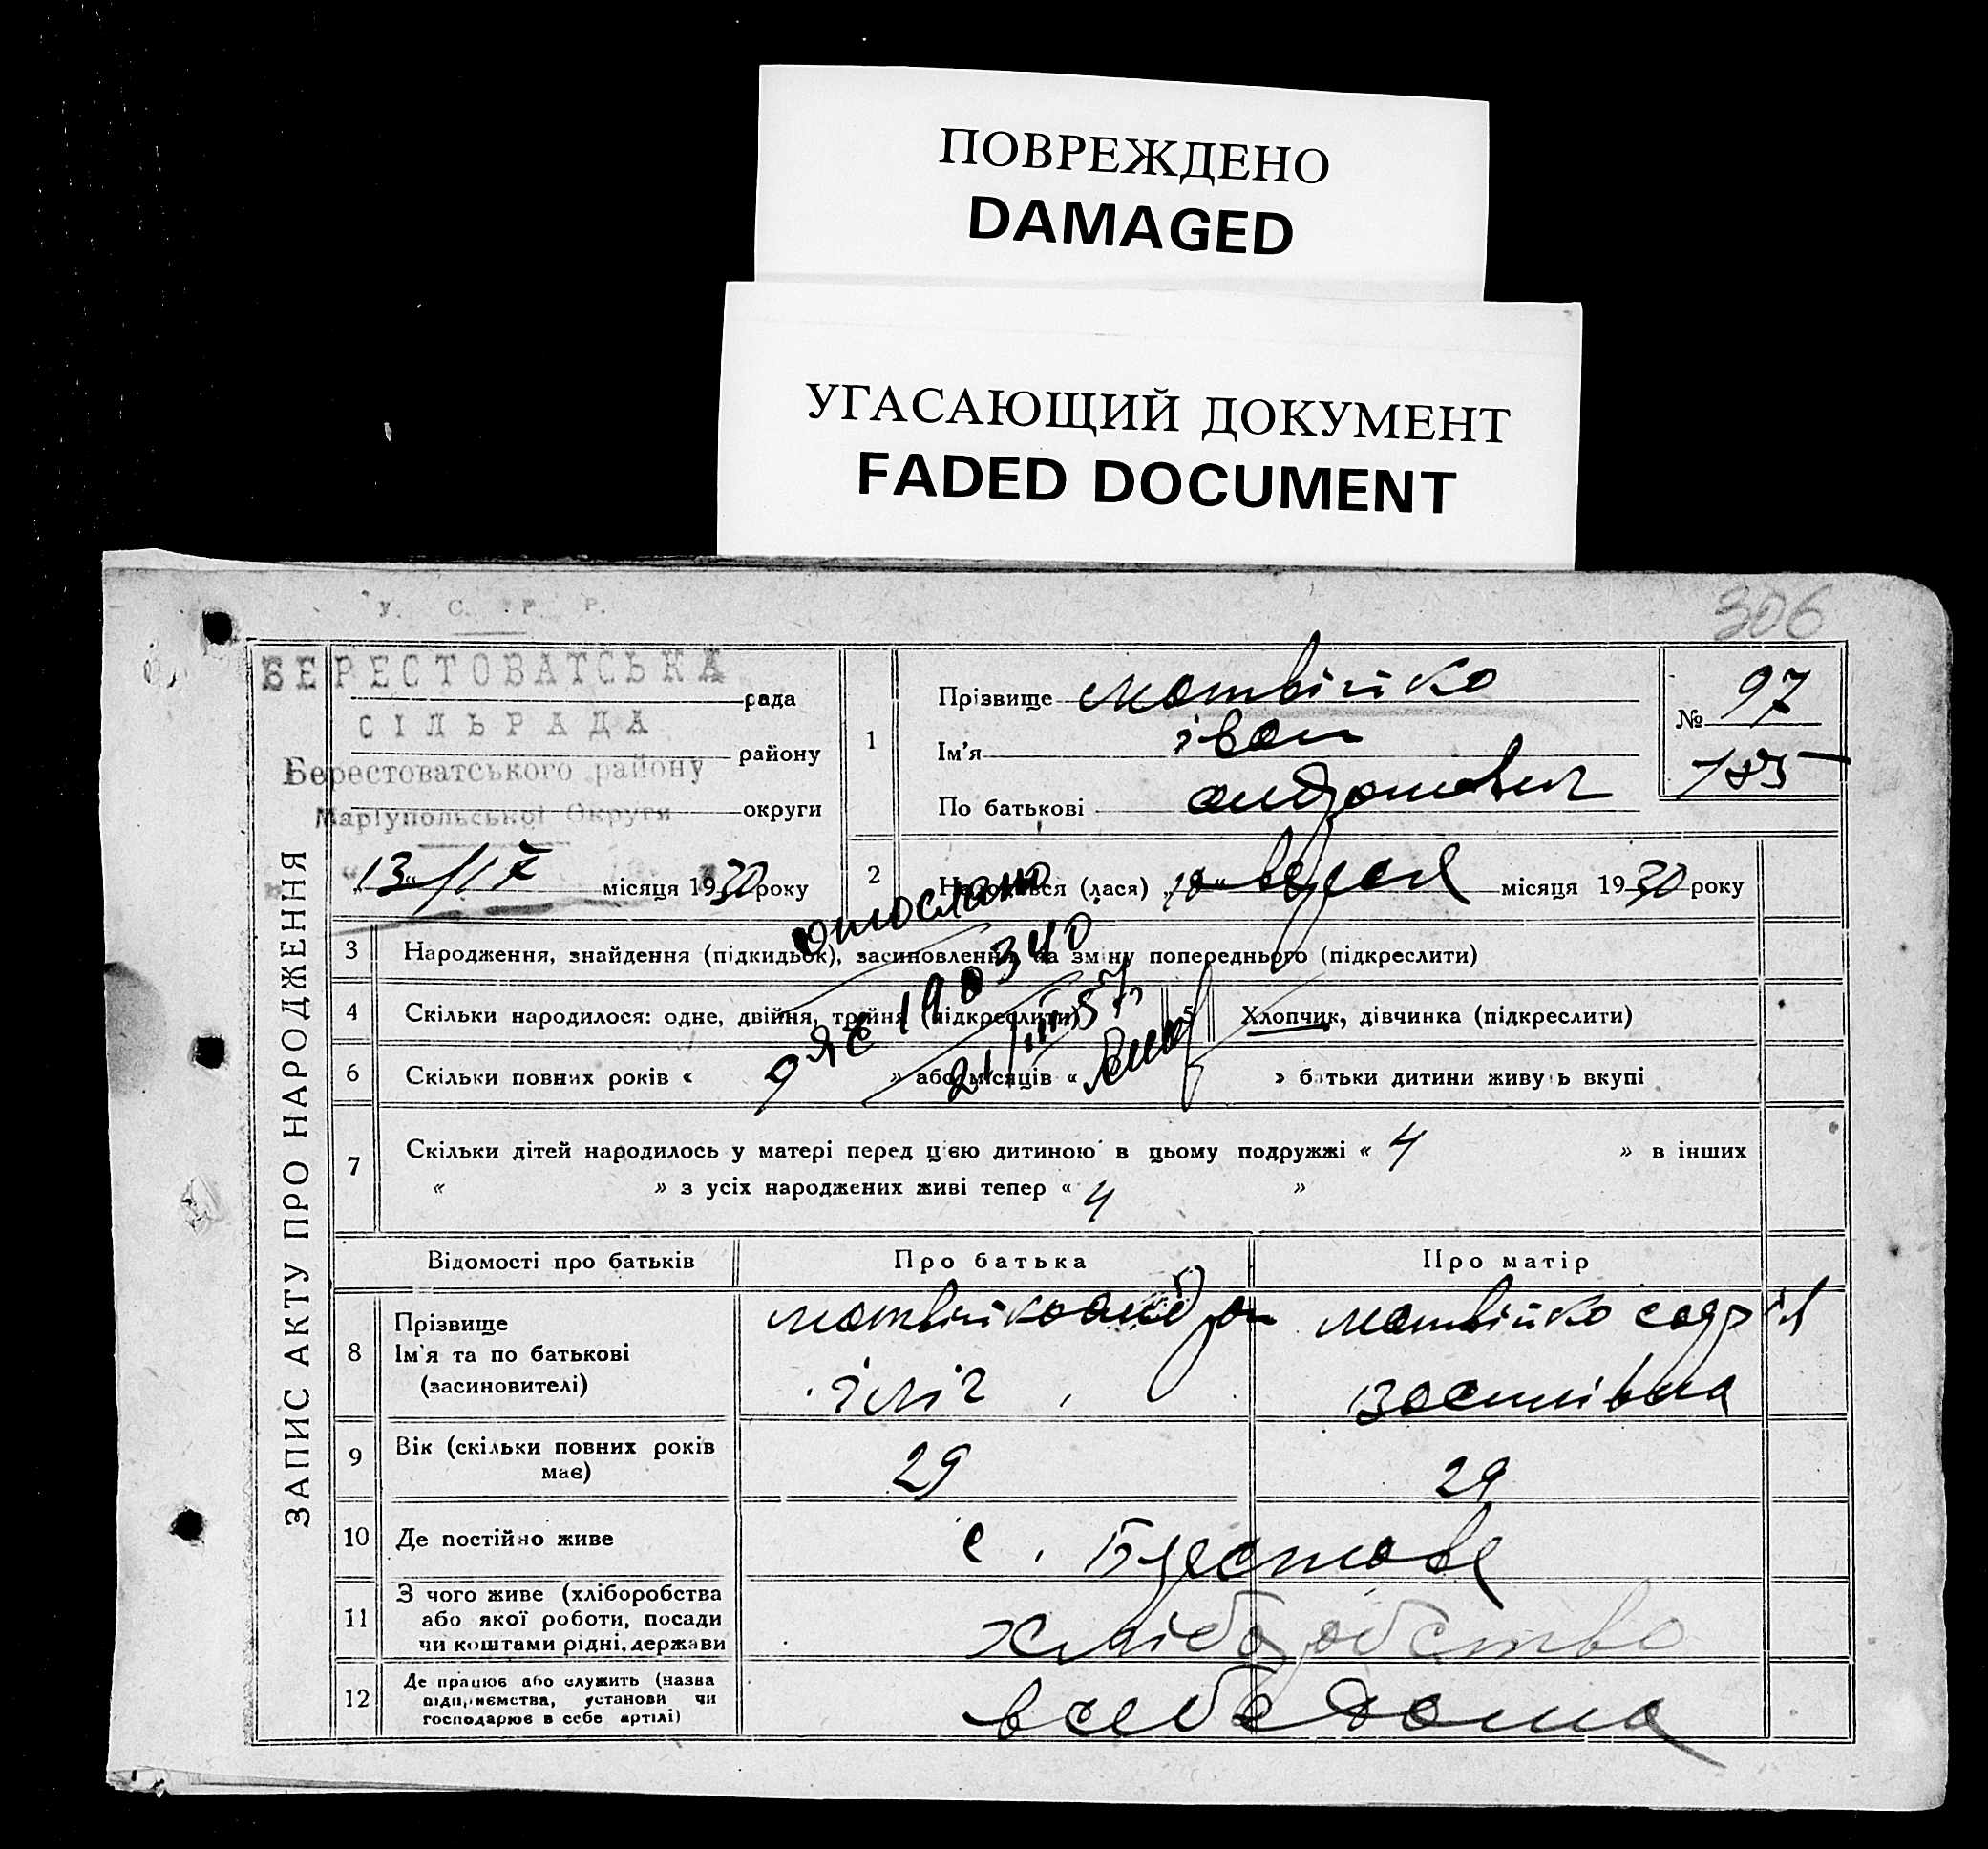 ПОВРЕЖДЕНО
DAMAGED
УГАСАЮЩИЙ ДОКУМЕНТ
FADED DOCUMENT
306
У. С. Р. Р.
ЗАПИС АКТУ ПРО НАРОДЖЕННЯ
БЕРЕСТОВАТСЬКА рада
СІЛЬРАДА району
Берестоватського району
Маріупольської Округи округи
13 місяця 1930 року
1
Прізвище Матвійко
Ім'я іван
По батькові андронович
№ 97
185
2 Народився (лася) „ “ місяця 1930 року
отослано
3 Народження, знайдення (підкидьок), засиновлення на зміну попереднього (підкреслити)
4 Скільки народилося: одне, двійня, тройня (підкреслити)
5 Хлопчик, дівчинка (підкреслити)
6 Скільки повних років « » або місяців « » батьки дитини живуть вкупі
7 Скільки дітей народилось у матері перед цією дитиною в цьому подружжі « 4 » в інших
« » з усіх народжених живі тепер « 4 »
Відомості про батьків Про батька Про матір
8 Прізвище
Ім'я та по батькові
(засиновителі)
Матвійко андрон
ілліч
Матвійко
9 Вік (скільки повних років має) 29 29
10 Де постійно живе с. Берестове
11 З чого живе (хліборобства
або якої роботи, посади
чи коштами рідні, держави
хліборобство
12 Де працює або служить (назва
підприємства, установи чи
господарює в себе артілі)
в себе дома